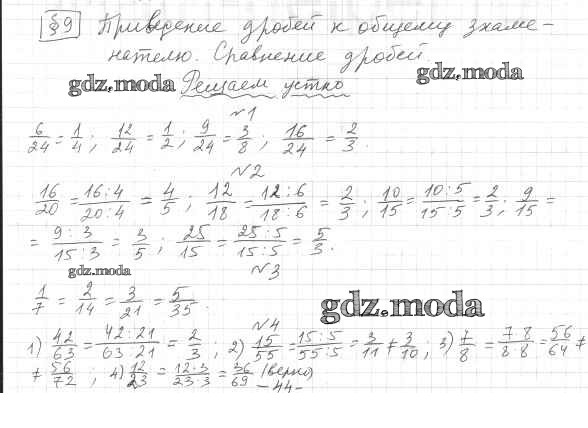 § 9 Приведение дробей к общему знаме-
нателю. Сравнение дробей.
gdz.moda Решаем устно gdz.moda
№1
6/24 = 1/4; 12/24 = 1/2; 9/24 = 3/8; 16/24 = 2/3.
№2
16/20 = 16:4/20:4 = 4/5; 12/18 = 12:6/18:6 = 2/3; 10/15 = 10:5/15:5 = 2/3; 9/15 =
= 9:3/15:3 = 3/5; 25/15 = 25:5/15:5 = 5/3.
gdz.moda №3
1/7 = 2/14 = 3/21 = 5/35.
gdz.moda
№4
1) 42/63 = 42:21/63:21 = 2/3; 2) 15/55 = 15:5/55:5 = 3/11 ≠ 3/10; 3) 7/8 = 7·8/8·8 = 56/64 ≠
≠ 56/72; 4) 12/23 = 12·3/23·3 = 36/69 (верно)
-44-